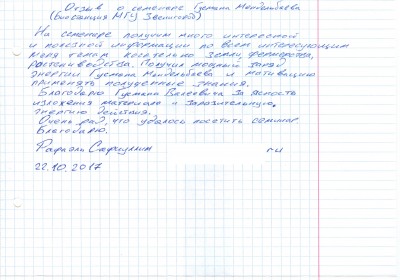 Отзыв о семенаре Гусмана Минлебаева
(Биостанция МГУ Звенигород)
На семенаре получил много интересной
и полезной информации по всем интересующим
меня темам касательно земли, фермерства,
растениеводства. Получил мощный заряд
энергии Гусмана Минлебаева и мотивацию
применять полученные знания.
Благодарю Гусмана Валеевича за ясность
изложения материала и заразительную
энергию действия.
Очень рад, что удалось посетить семинар.
Благодарю.
Рафаэль Сафиуллин
ru
22.10.2017